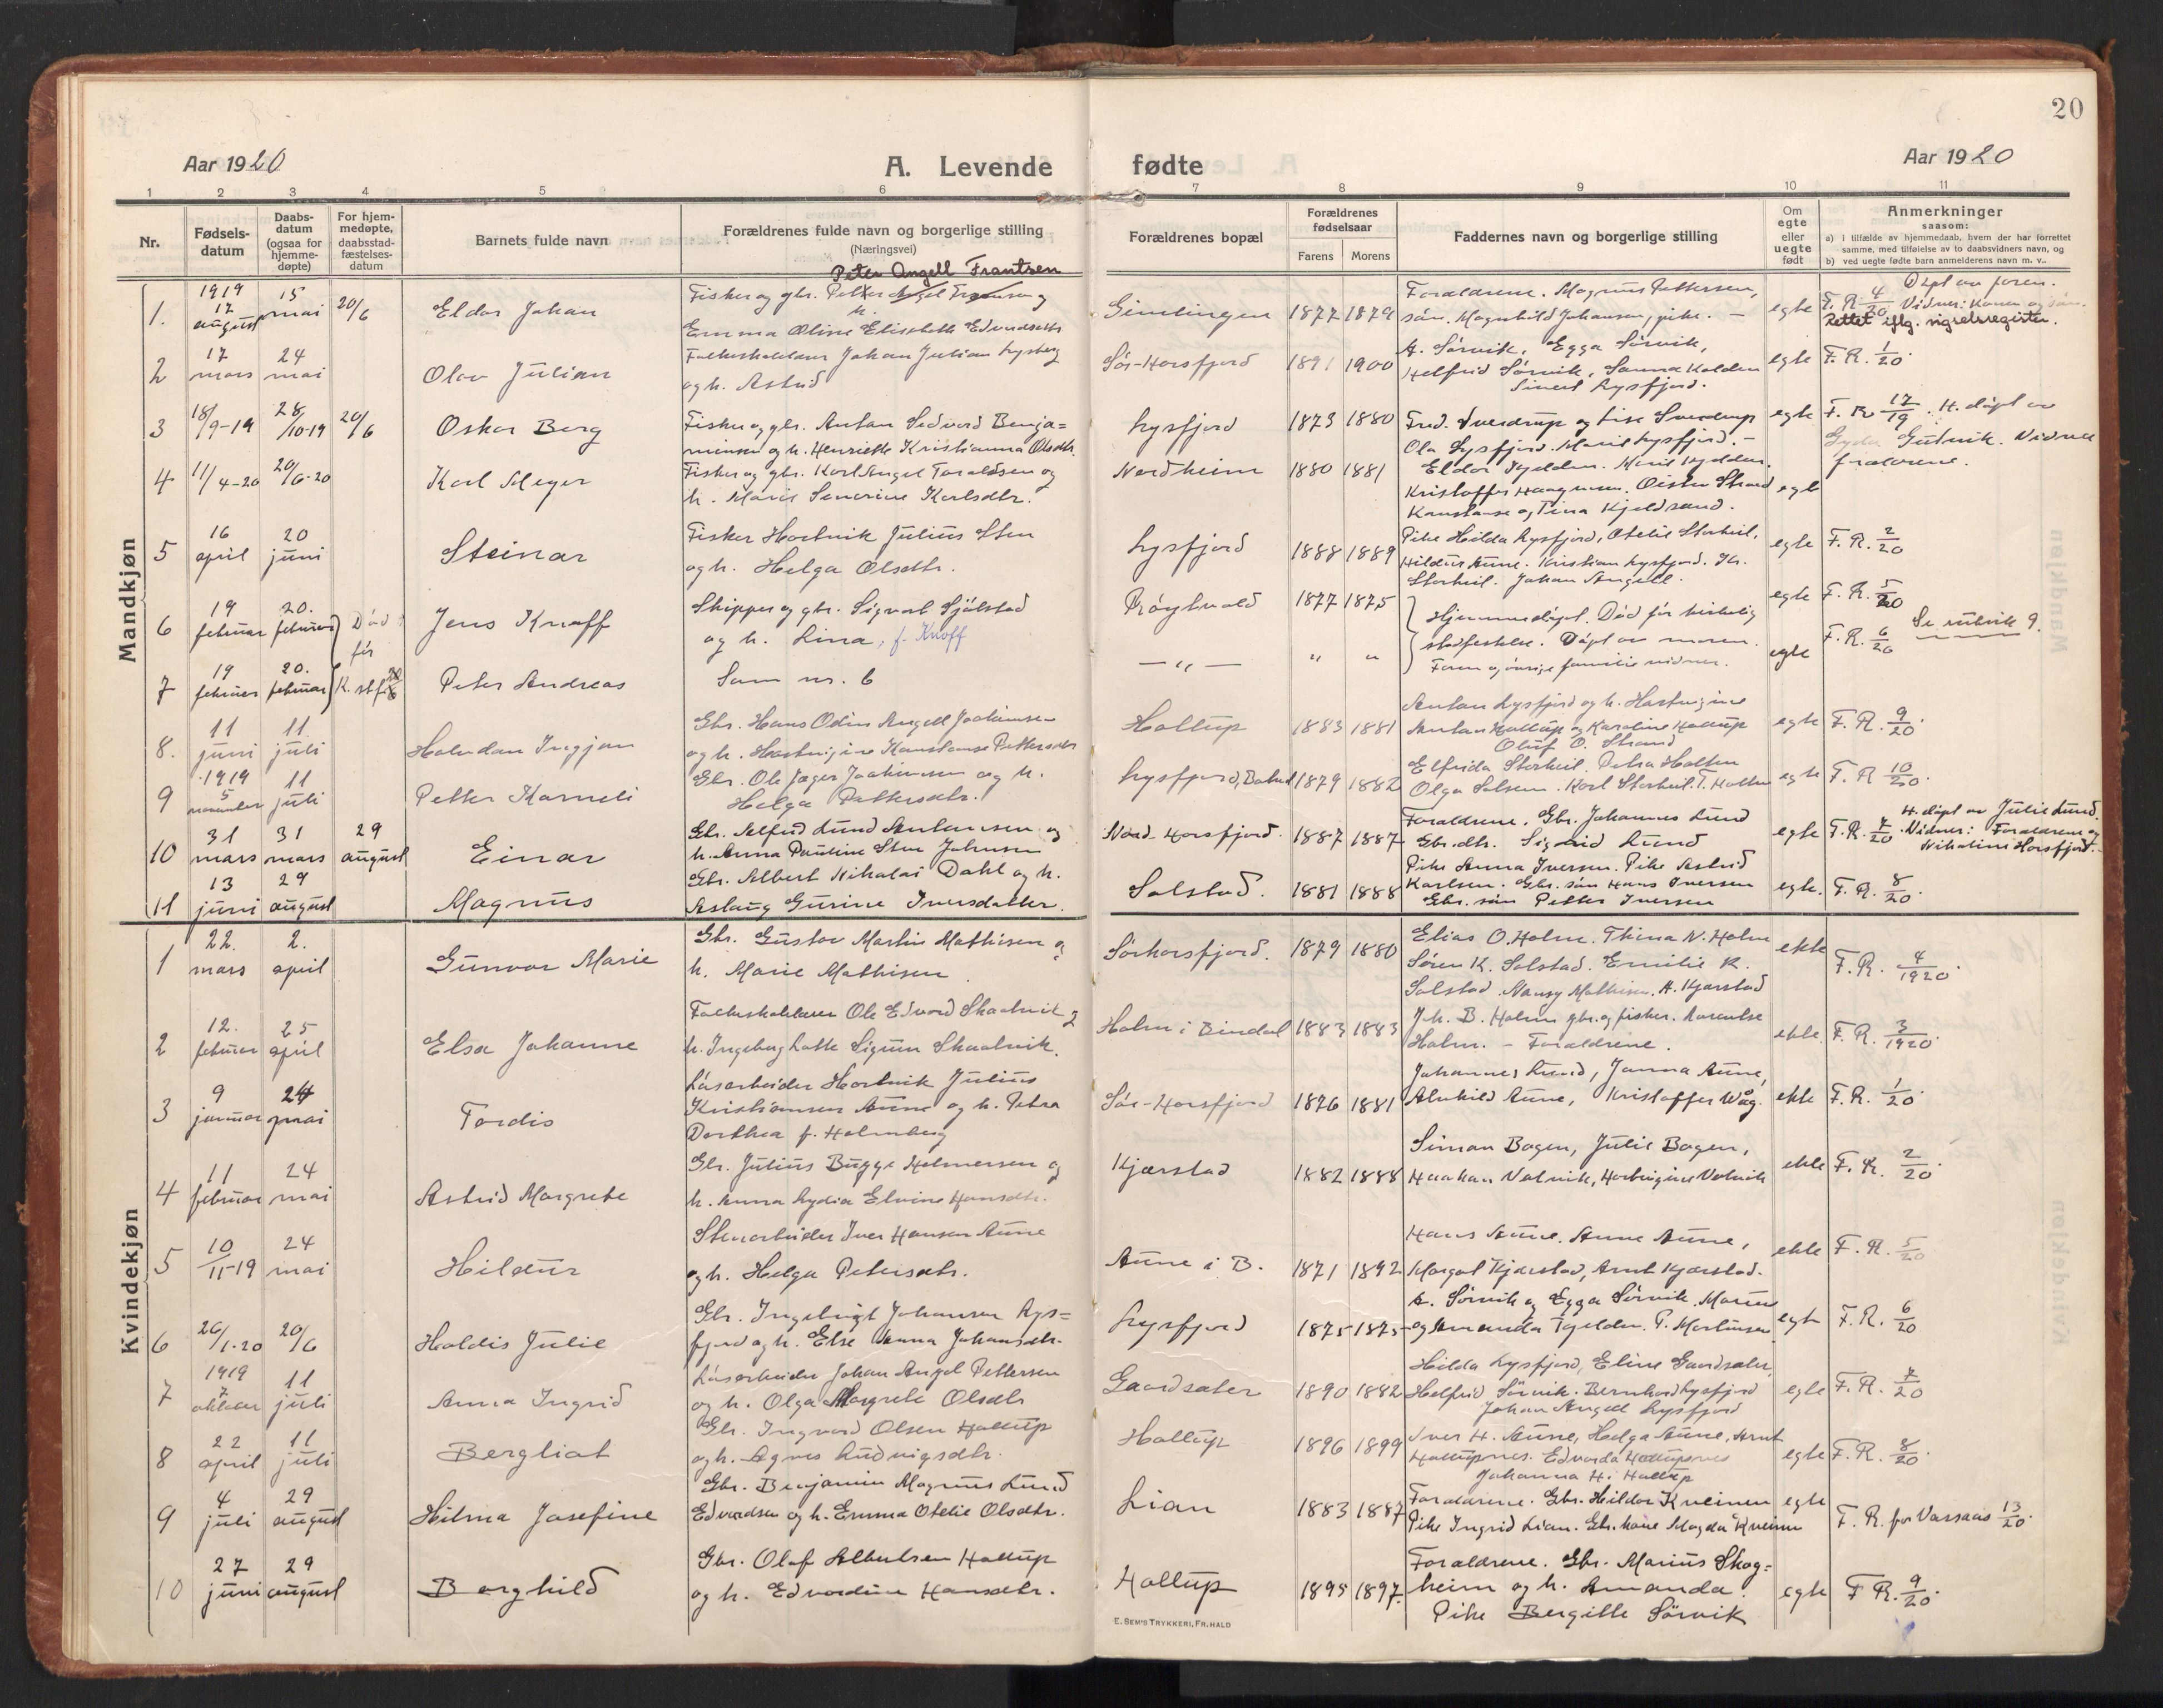 20
Aar 1920
A. Levende
fødte
Aar 1920
1 2 3 4 5 6 7 8 9 10 11
Nr.
Fødsels-
datum
Daabs-
datum
(ogsaa for
hjemme-
døpte)
For hjem-
medøpte,
daabsstad-
fæstelses-
datum
Barnets fulde navn
Forældrenes fulde navn og borgerlige stilling
(Næringsvei)
Forældrenes bopæl
Forældrenes
fødselsaar
Farens
Morens
Faddernes navn og borgerlige stilling
Om
egte
eller
uegte
født
Anmerkninger
saasom:
a) i tilfælde av hjemmedaab, hvem der har forrettet
samme, med tilføielse av to daabsvidners navn, og
b) ved uegte fødte barn anmelderens navn m. v..
Mandkjøn
Peter Angell Frantsen
1. 1919 17 august 15 mai 20/6 Eldor Johan
Fisker og gbr. Petter Angel Fransen og
h. Emma Oline Elisabeth Edvardsdtr
Simlingen 1877 1879
Forældrene. Magnus Pettersen,
søn. Magnhild Johansen, pike. —
egte F. R. 4/20 Døpt av foren.
Vidner: Konen og søn.
Rettet iflg. vigselsregister.
2 17 mars 24 mai Olav Julian
Folkeskolelærer Johan Julian Lysberg
og h. Astrid
Sør-Horsfjord 1891 1900
A. Sørvik, Egga Sørvik,
Helfrid Sørvik, Sanna Kolden
Sivert Lysfjord.
egte F. R. 1/20.
3 18/9-19 28/10-19 20/6 Oskar Berg
Fisker og gbr. Anton Sedvard Benja=
minsen og h. Henriette Kristianna Olsdtr.
Lysfjord 1873 1880
Fred. Sverdrup og Lise Sverdrup
Ola Lysfjord. Marie Lysfjord. —
egte F. R. 17/19. H. døpt av
Gyda Gutvik. Vidner
forældrene.
4 11/4-20 20/6-20 Karl Meyer
Fisker og gbr. Karl Angel Toraldsen og
h. Marie Severine Karlsdtr.
Nordheim 1880 1881
Eldor Kjelden. Marie Kjelden.
Kristoffer Haagensen. Oistein Strand
Konstanse og Tina Kjeldsand.
egte
5 16 april 20 juni Steinar
Fisker Hartvik Julius Sten
og h. Helga Olsdtr.
Lysfjord 1888 1889
Pike Hilda Lysfjord, Otelie Storheil,
Hildur Aune. Kristian Lysfjord. Kr.
Storheil. Johan Angell.
egte F. R. 2/20
6 19 februar 20. februar Død før Jens Knoff
Skipper og gbr. Sigvart Sjølstad
og h. Lina, f. Knoff
Røytvold 1877 1875
Hjemmedøpt. Død før kirkelig
stadfestelse. Døpt av moren.
Faren og øvrige familie vidner.
egte F. R. 5/20
Se rubrik 9.
7 19 februar 20. februar K. stf. 20/6 Peter Andreas
Som nr. 6
— „ — „ „ egte F. R. 6/20
8. 11 juni 11 juli Halvdan Ingjan
Gbr. Hans Odin Angell Joakimsen
og h. Hartvigine Konstanse Pettersdtr
Holtup 1883 1881
Anton Lysfjord og h. Hartvigine
Anton Holtup og Karoline Holtup
Oluf O. Strand
egte F. R. 9/20.
9 1919 5 november 11 juli Petter Korneli
Gbr. Ole Jæger Joakimsen og h.
Helga Pettersdtr.
Lysfjord, Bolid 1879 1882
Elfrida Storheil. Petra Holten
Olga Solsem. Karl Storheil. T. Holten
egte F. R. 10/20.
10 31 mars 31 mars 29 august Einar
Gbr. Alfred Lund Antonsen og
h. Anna Pauline Sten Johnsen
Nord-Horsfjord. 1887 1887
Forældrene. Gbr. Johannes Lund
Gbr.dtr. Sigrid Lund
egte F. R. 7/20. H. døpt av Julie Lund.
Vidner: Forældrene og
Nikoline Horsfjord.
11 13 juni 29 august Magnus
Gbr. Albert Nikolai Dahl og h.
Aslaug Gurine Iversdatter.
Solstad. 1881 1888
Pike Anna Iversen. Pike Astrid
Karlsen. Gbr. søn Hans Iversen
Gbr. søn Petter Iversen
egte. F. R. 8/20.
Kvindekjøn
1 22. mars 2. april Gunvor Marie
Gbr. Gustav Martin Mathisen og
h. Marie Mathisen
Sørhorsfjord. 1879 1880
Elias O. Holm. Thina N. Holm
Søren K. Solstad. Emilie K.
Solstad. Nansy Mathisen. A. Kjærstad
ekte F. R. 4/1920.
2 12. februar 25 april Elsa Johanne
Folkeskolelærer Ole Edvard Skaalvik og
h. Ingeborg Lotte Sigrun Skaalvik.
Holm i Bindal 1883 1883
J.h. B. Holm gbr. og fisker. Laurentse
Holm. – Forældrene.
ekte. F. R. 3/1920.
3 9 januar 24 mai Tordis
Løsarbeider Hartvik Julius
Kristiansen Aune og h. Petra
Dorthea f. Holmberg
Sør-Horsfjord 1876 1881
Johannes Lund, Janna Aune,
Alvhild Aune, Kristoffer Wåg.
ekte F. R. 1/20.
4 11 februar 24 mai Astrid Margrete
Gbr. Julius Bugge Helmersen og
h. Anna Lydia Elvine Hansdtr.
Kjærstad 1882 1888
Simon Bogen, Julie Bogen,
Haakan Vatnvik, Hartvigine Vatnvik
ekte F. R. 2/20.
5 10/11-19 24 mai Hildur
Stenarbeider Iver Hansen Aune
og h. Helga Petersdtr.
Aune i B. 1871 1892
Hans Aune. Anne Aune,
Margot Kjærstad, Arnt Kjærstad.
ekte F. R. 5/20
6 26/1-20 20/6 Haldis Julie
Gbr. Ingebrigt Johansen Lys=
fjord og h. Else Anna Johansdtr.
Lysfjord 1875 1875
A. Sørvik og Egga Sørvik. Marius
og Amanda Kjelden. P. Martinsen
egte F. R. 6/20
7 1919 7 oktober 11 juli Anna Ingrid
Løsarbeider Johan Angel Pettersen
og h. Olga Margrete Olsdtr
Gaardsæter 1890 1882
Hilda Lysfjord, Eline Gaardsæter,
Helfrid Sørvik. Bernhard Lysfjord
Johan Angell Lysfjord
egte F. R. 7/20
8 22 april 11 juli Bergliot
Gbr. Ingvard Olsen Holtup
og h. Agnes Ludvigsdtr.
Holtup 1896 1899
Iver H. Aune, Helga Aune, Arnt
Holtupnes. Edvarda Holtupnes
Johanna H. Holtup
egte F. R. 8/20.
9 4 juli 29 august Hilma Josefine
Gbr. Benjamin Magnus Lund
Edvardsen og h. Emma Otelie Olsdtr.
Lian 1883 1887
Forældrene. Gbr. Hildor Kveinen
Pike Ingrid Lian. Gbr. kone Magda Kveinen
egte F. R. for Vassaas 13/20.
10 27 juni 29 august Borghild
Gbr. Olaf Albertsen Holtup
og h. Edvardine Hansdtr.
Holtup 1895 1897.
Forældrene. Gbr. Marius Skog=
heim og h. Amanda.
Pike Bergitte Sørvik
egte F R. 9/20.
E. SEM'S TRYKKERI, FR.HALD